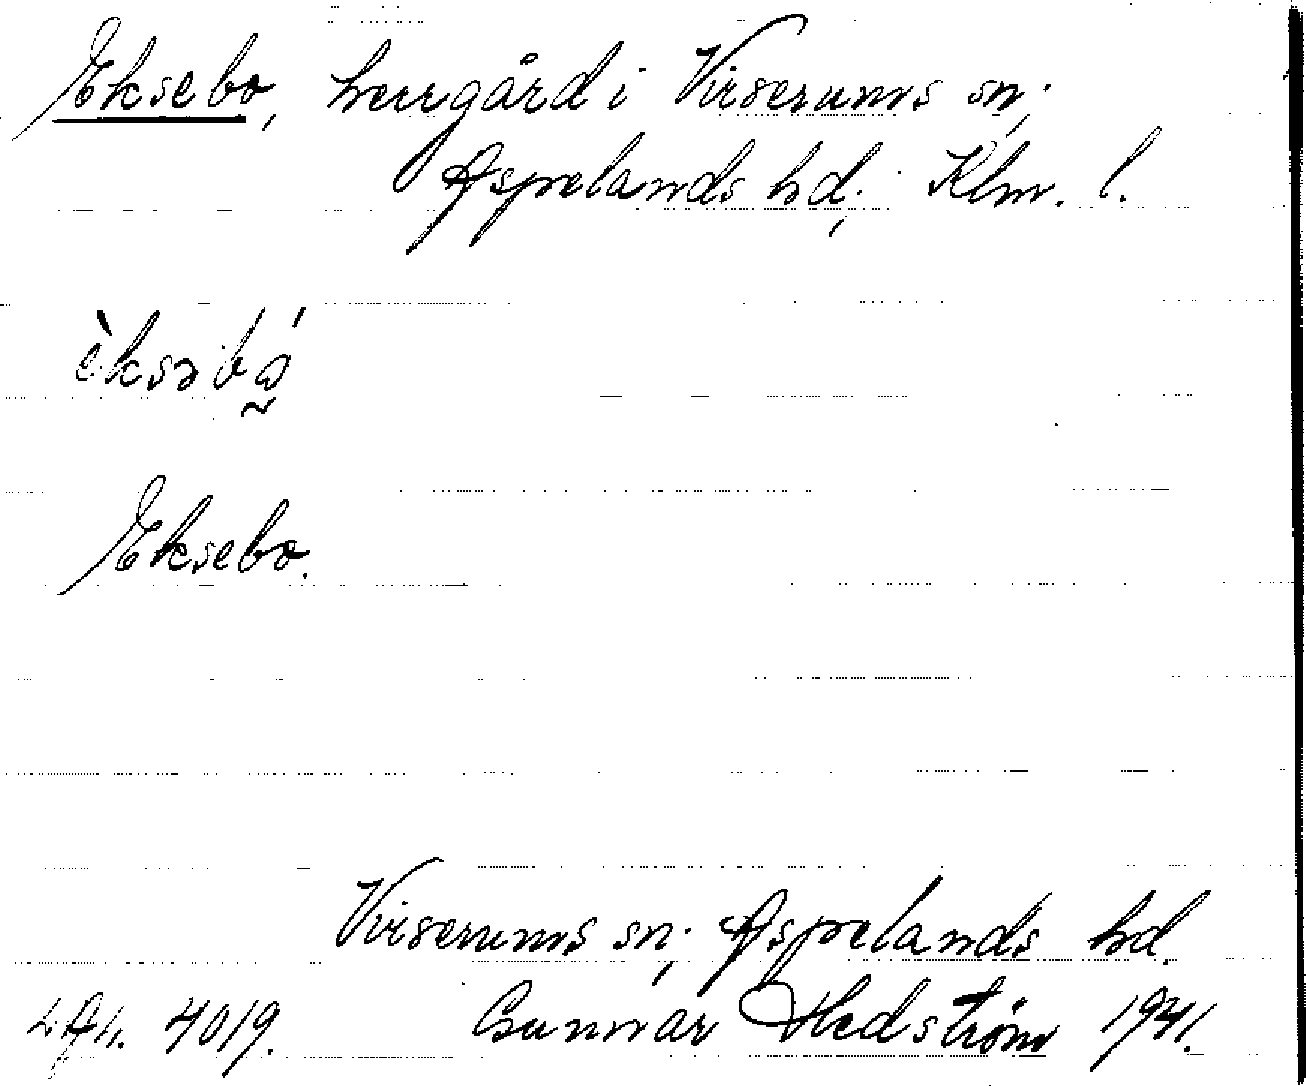 Eksebo, herrgård i Virserums sn,
Aspelands hd, Klm. l.
èksəbó̰
Eksebo.
Virserums sn, Aspelands hd.
LAL. 4019. Gunnar Hedström 1941.